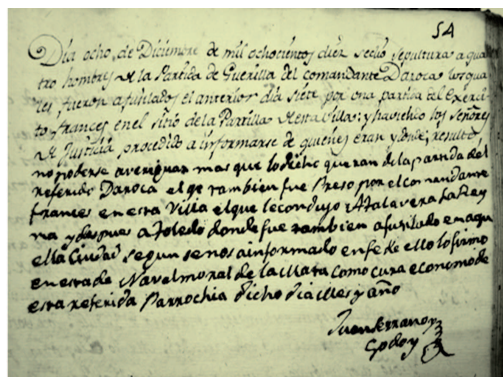 54
Dia ocho, de Diciembre de mil ochocientos diez sedio sepultura a qua
tro hombres de la Partida de Guerilla del comandante Daroca los qua
les, fueron afusilados el anterior dia siete por una partida del Exerci
to frances en el sitio de la Partilla de esta Villa; y haviendo los señores
de Justicia procedido a informarse de quienes eran y donde; resultó,
no poderse averiguar mas que lo dicho que eran de la partida del
referido Daroca el qe tambien fue Preso por el comandante
frances en esta Villa el que le condujo a talavera la Rey
na y despues a toledo donde fue tambien afusilado en aqu
ella Ciudad segun se nos a informado en fe de ello lo firmo
en esta de Navalmoral de la Mata como cura economo de
esta referida Parrochia dicho dia Mes y año
Juan Serrano y
Godoy